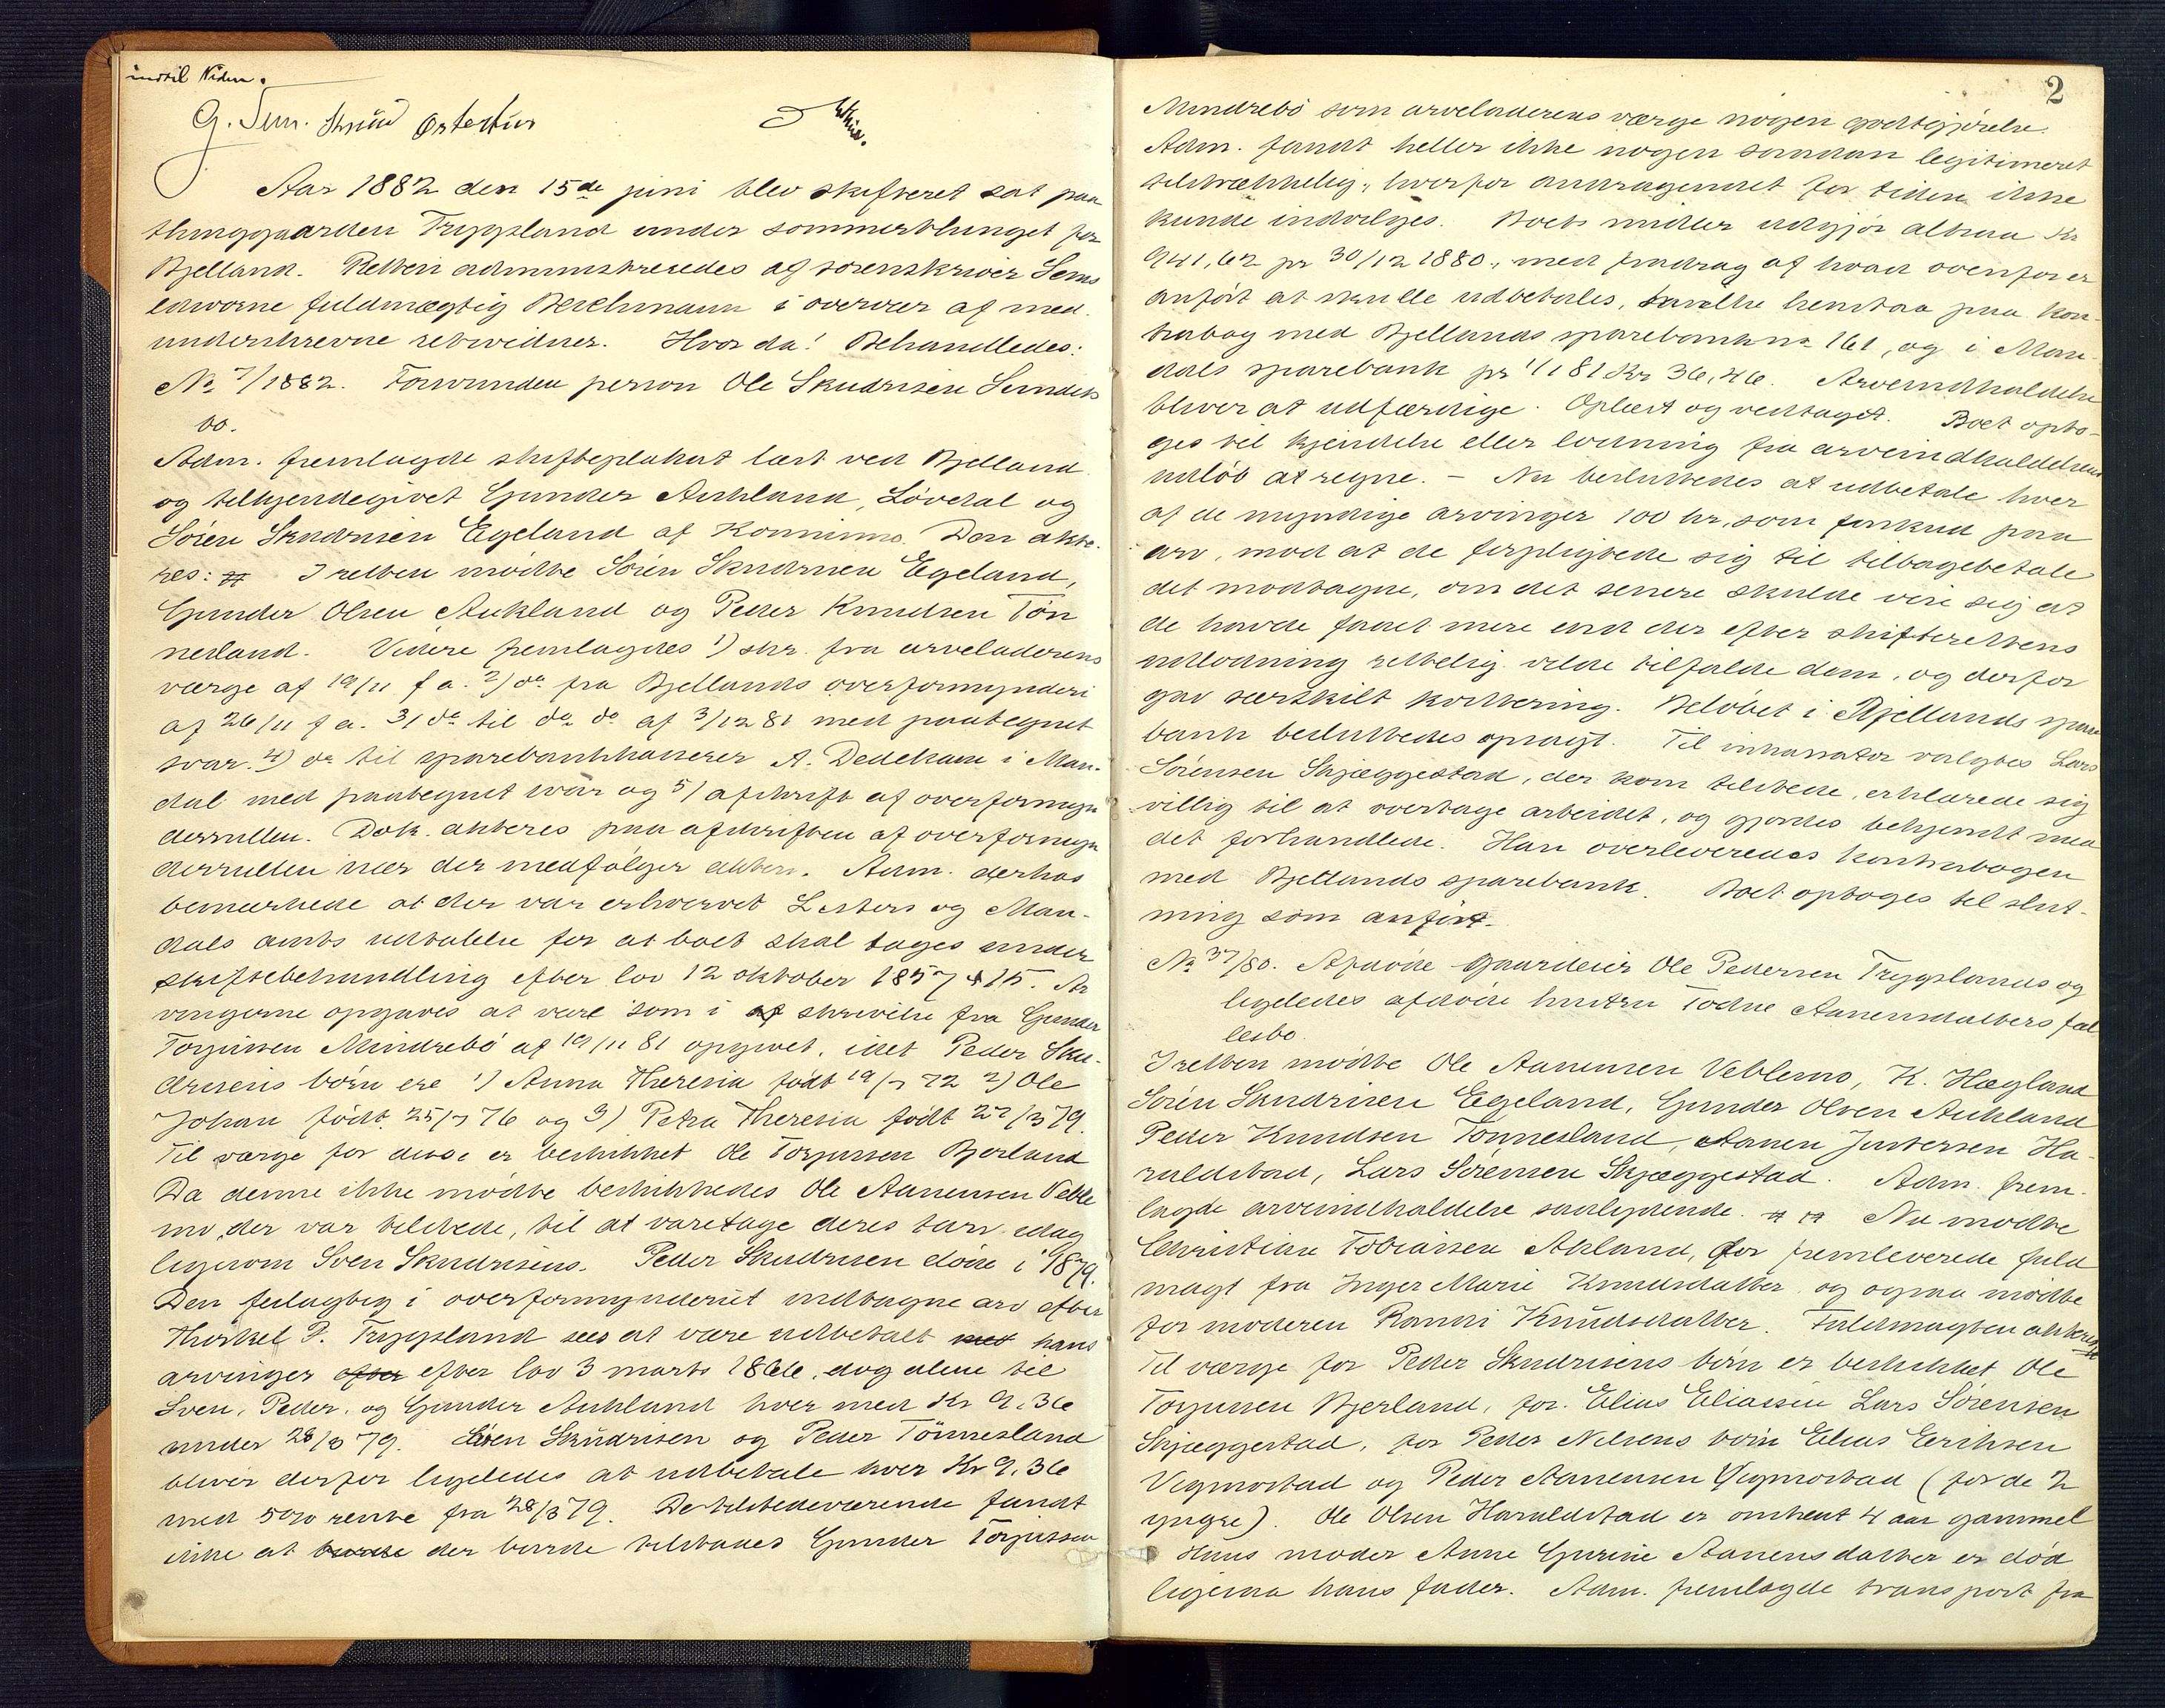 indtil Viden.
G. Sem. Skuud
Aar 1882 den 15de juni blev skifteret sat paa
thinggaarden Trygsland under sommerthinget for
Bjelland. Retten administreredes af sorenskriver Sems
edsvorne fuldmægtig Berchmann i overvær af med
underskrevne retsvidner. Hvor da! Behandledes:
No 7/1882. Forsvunden person Ole Skudrisen Sundets
bo.
Adm. fremlagde skifteplakat læst ved Bjelland
og tilkjendegivet Gunder Aukland, Løvdal og
Sören Skudrisen Egeland af Konnismo. Den akte-
res: # I retten mödte Sören Skudrisen Egeland,
Gunder Olsen Aukland og Peder Knudsen Tön
nesland. Videre fremlagdes 1) skr. fra arveladerens
værge af 19/11 f a. 2) do fra Bjellands overformynderi
af 26/11 f a. 3) do til do do af 3/12 81 med paategnet
svar. 4) do til sparebankkasserer A. Dedekam i Man-
dal med paategnet svar og 5) afskrift af overformyn
derrullen. Dok. akteres paa afskriften af overformyn
derrullen nær der medfølger akten. Adm. derhos
bemærkede at der var erhvervet Listers og Man-
dals amts udtalelse for at boet skal tages under
skiftebehandling efter lov 12 oktober 1857 § 15. Ar
vingerne opgaves at være som i af skrivelse fra Gunder
Torjussen Mindrebö af 19/11 81 opgivet, idet Peder Sku-
drisens börn ere 1) Anna Theresia födt 19/7 72 2) Ole
Johan födt 25/7 76 og 3) Petra Theresia födt 22/3 79.
Til værge for disse er beskikket Ole Torjussen Bjerland
Da denne ikke mödte beskikkedes Ole Aanensen Veble
mo, der var tilstede, til at varetage deres tarv idag
ligesom Sven Skudrisens. Peder Skudrisen döde i 1879.
Den fuldagtig i overformynderiet indtagne arv efter
Thorkel P. Trygsland sees at være udbetalt med hans
arvinger efter efter lov 3 marts 1866, dog alene til
Sven, Peder, og Gunder Aukland hver med Kr 9.36
under 28/3 79. Sören Skudrisen og Peder Tönnesland
bliver derfor ligeledes at udbetale hver Kr 9.36
med 5% rente fra 28/3 79. De tilstedeværende fandt
ikke at burde der burde tilstaaes Gunder Torjussen
2
Mindrebö som arveladerens værge nogen godtgjörelse.
Adm. fandt heller ikke nogen saadan legitimeret
tilstrækkelig, hvorfor andragendet for tiden ikke
kunde indvilges. Boets midler udgjör altsaa Kr
941,62 pr 30/12 1880, med fradrag af hvad ovenfor er
anfört at skulle udbetales, hvilke henstaa paa kon-
trabog med Bjellands sparebank no 161, og i Man-
dals sparebank pr 1/1 81 Kr 36,46. Arveindkaldelse
bliver at udfærdige. Oplæst og vedtaget. Boet opta-
ges til kjendelse eller lodning fra arveindkaldelsens
udlöb at regne. - Nu besluttedes at udbetale hver
af de myndige arvinger 100 kr, som forskud paa
arv, mod at de forpligtede sig til tilbagebetale
det modtagne, om det senere skulde vise sig at
de havde faaet mere end der efter skifterettens
udlodning rettelig vilde tilfalde dem, og derfor
gav særskilt kvittering. Belöbet i Bjellands spare
bank besluttedes opsagt. Til inkassator valgtes Lars
Sörensen Skjæggestad, der kom tilstede, erklærede sig
villig til at overtage arbeidet, og gjordes bekjendt med
det forhandlede. Han overleveredes kontrabogen
med Bjellands sparebank. Boet optoges til slut-
ning som anfört.
No 37/80. Afdöde gaardeier Ole Pedersen Trygslands og
ligeledes afdöde hustru Todne Aanensdatters fæl
lesbo.
I retten mödte Ole Aanensen Veblemo, K. Hægland
Sören Skudrisen Egeland, Gunder Olsen Aukland
Peder Knudsen Tönnesland, Aanen Justersen Ha-
raldstad, Lars Sörensen Skjæggestad. Adm. frem-
lagde arveindkaldelse saalydende. # # Nu mödte
Christian Tobiassen Akland, for fremleverede fuld
magt fra Inger Marie Knudsdatter og ogsaa mödte
for moderen Ranni Knudsdatter. Fuldmagten akteres
Til værge for Peder Skudrisens börn er beskikket Ole
Torjussen Bjerland, for Elias Eliassen Lars Sörensen
Skjæggestad, for Peder Nilsens börn Elias Eriksen
Vegmostad og Peder Aanensen Vegmostad (for de 2
yngre). Ole Olsen Haraldstad er omtrent 4 aar gammel
Hans moder Anne Gurine Aanensdatter er död
ligesaa hans fader. Adm. fremlagde transport fra